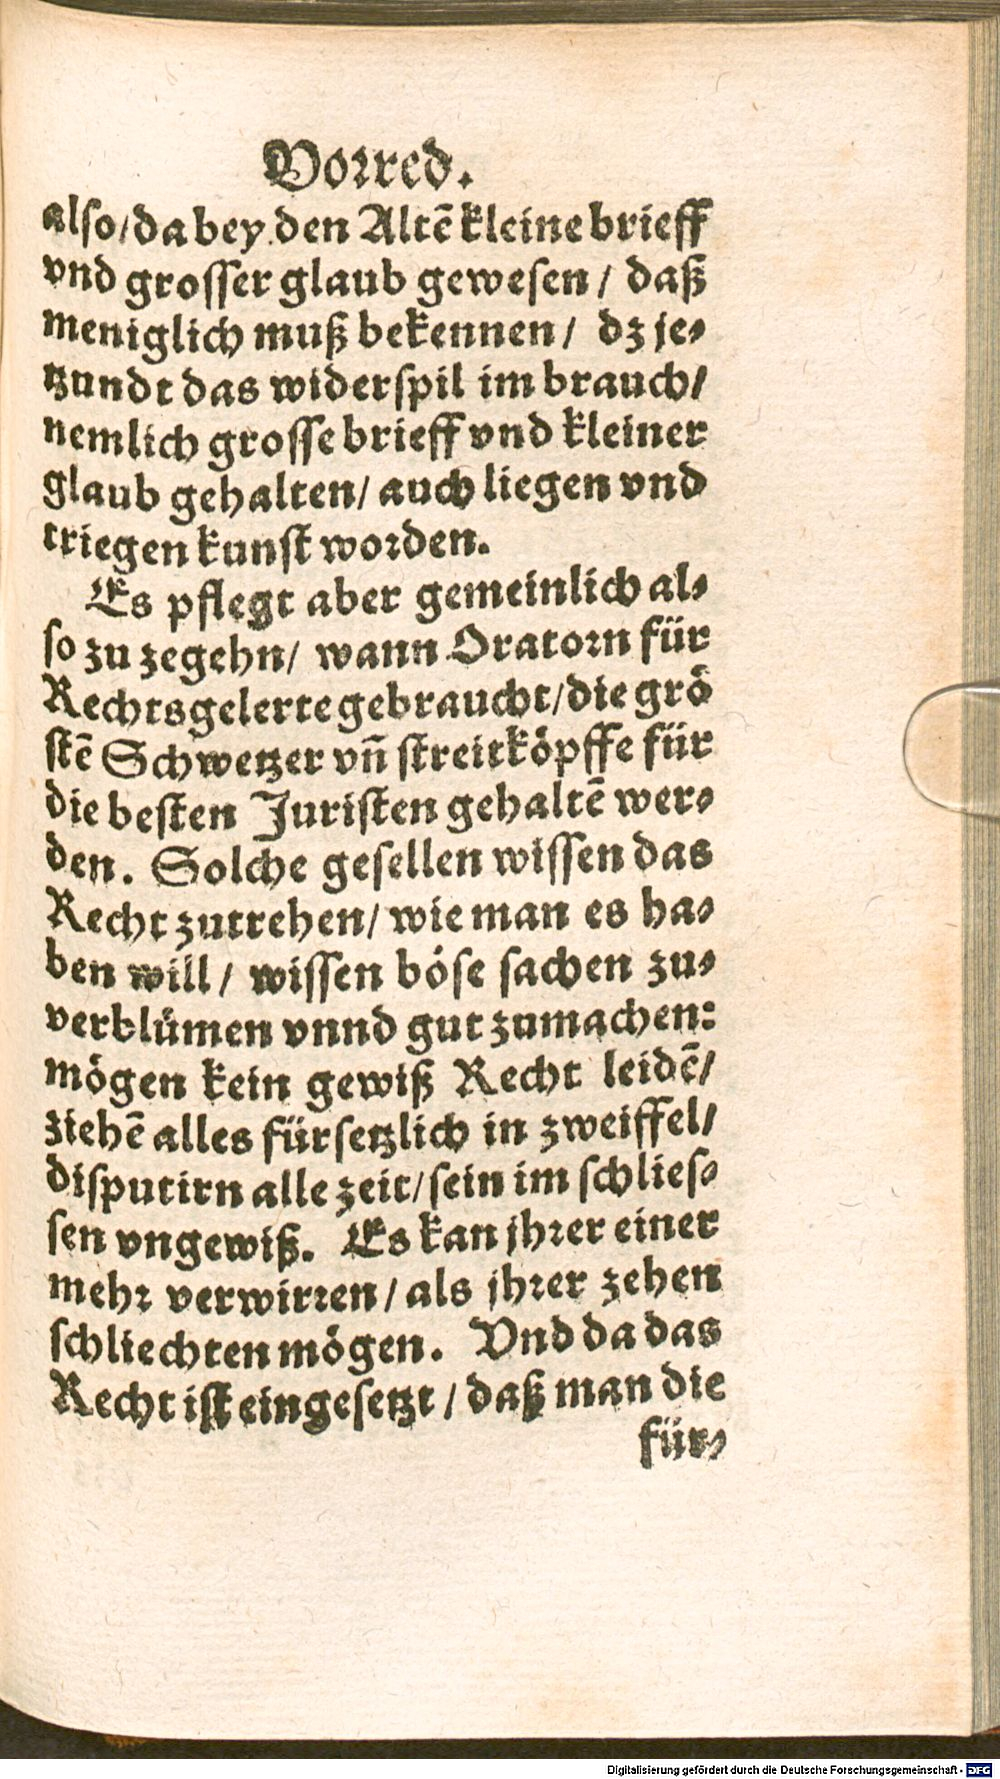 Vorred.
also/da bey den Altē kleine brieff
vnd grosser glaub gewesen / daß
meniglich muß bekennen / dz je-
tzundt das widerspil im brauch/
nemlich grosse brieff vnd kleiner
glaub gehalten/ auch liegen vnd
triegen kunst worden.
Es pflegt aber gemeinlich al-
so zu zegehn/ wann Oratorn für
Rechtsgelerte gebraucht/die grö
stē Schwetzer vn̄ streitköpffe für
die besten Juristen gehaltē wer-
den. Solche gesellen wissen das
Recht zutrehen/ wie man es ha-
ben will / wissen böse sachen zu-
verblümen vnnd gut zumachen:
mögen kein gewiß Recht leidē/
ziehē alles fürsetzlich in zweiffel/
disputirn alle zeit/sein im schlies-
sen vngewiß. Es kan jhrer einer
mehr verwirren / als jhrer zehen
schliechten mögen. Vnd da das
Recht ist eingesetzt / daß man die
für-
Digitalisierung gefördert durch die Deutsche Forschungsgemeinschaft - DFG